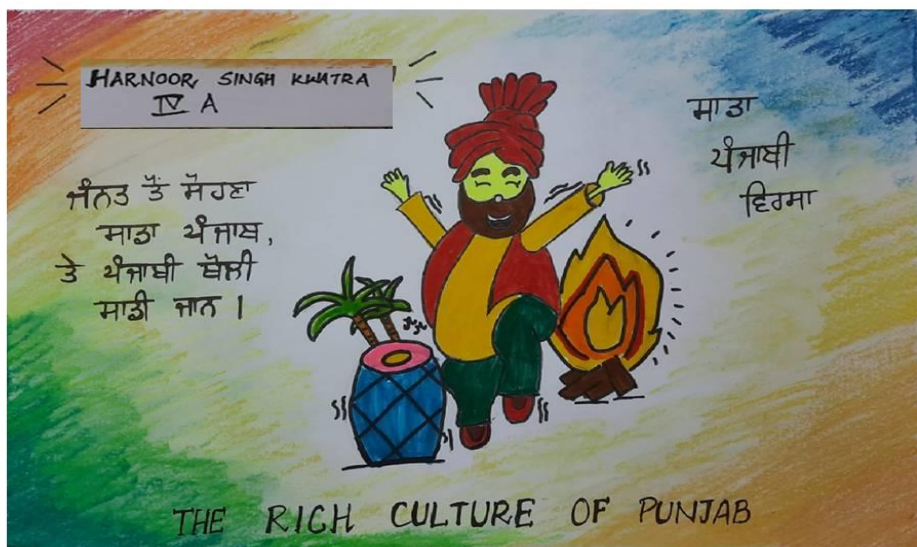 HARNOOR SINGH KWATRA
IV A
ਜੰਨਤ ਤੋਂ ਸੋਹਣਾ
ਸਾਡਾ ਪੰਜਾਬ,
ਤੇ ਪੰਜਾਬੀ ਬੋਲੀ
ਸਾਡੀ ਜਾਨ ।
ਸਾਡਾ
ਪੰਜਾਬੀ
ਵਿਰਸਾ
THE RICH CULTURE OF PUNJAB